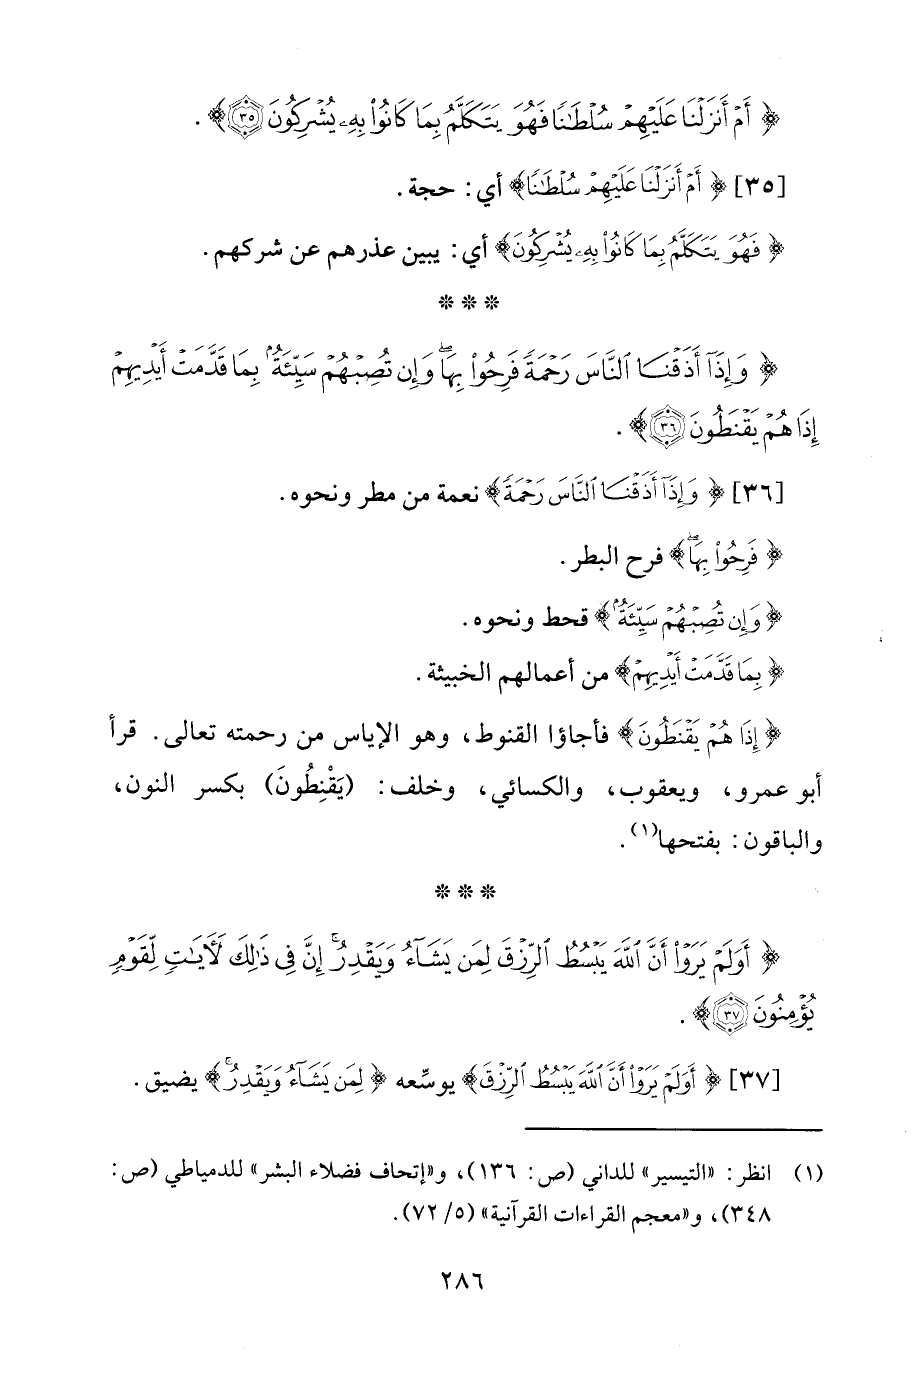 ﴿ أَمْ أَنزَلْنَا عَلَيْهِمْ سُلْطَٰنًا فَهُوَ يَتَكَلَّمُ بِمَا كَانُوا۟ بِهِۦ يُشْرِكُونَ ٣٥ ﴾ .
[٣٥] ﴿ أَمْ أَنزَلْنَا عَلَيْهِمْ سُلْطَٰنًا ﴾ أي : حجة .
﴿ فَهُوَ يَتَكَلَّمُ بِمَا كَانُوا۟ بِهِۦ يُشْرِكُونَ ﴾ أي : يبين عذرهم عن شركهم .
* * *
﴿ وَإِذَآ أَذَقْنَا ٱلنَّاسَ رَحْمَةً فَرِحُوا۟ بِهَاۖ وَإِن تُصِبْهُمْ سَيِّئَةٌۢ بِمَا قَدَّمَتْ أَيْدِيهِمْ
إِذَا هُمْ يَقْنَطُونَ ٣٦ ﴾ .
[٣٦] ﴿ وَإِذَآ أَذَقْنَا ٱلنَّاسَ رَحْمَةً ﴾ نعمة من مطر ونحوه .
﴿ فَرِحُوا۟ بِهَاۖ ﴾ فرح البطر .
﴿ وَإِن تُصِبْهُمْ سَيِّئَةٌۢ ﴾ قحط ونحوه .
﴿ بِمَا قَدَّمَتْ أَيْدِيهِمْ ﴾ من أعمالهم الخبيثة .
﴿ إِذَا هُمْ يَقْنَطُونَ ﴾ فأجاؤا القنوط، وهو الإياس من رحمته تعالى . قرأ
أبو عمرو، ويعقوب، والكسائي، وخلف : (يَقْنِطُونَ) بكسر النون،
والباقون : بفتحها(١) .
* * *
﴿ أَوَلَمْ يَرَوْا۟ أَنَّ ٱللَّهَ يَبْسُطُ ٱلرِّزْقَ لِمَن يَشَآءُ وَيَقْدِرُۚ إِنَّ فِى ذَٰلِكَ لَءَايَٰتٍ لِّقَوْمٍ
يُؤْمِنُونَ ٣٧ ﴾ .
[٣٧] ﴿ أَوَلَمْ يَرَوْا۟ أَنَّ ٱللَّهَ يَبْسُطُ ٱلرِّزْقَ ﴾ يوسِّعه ﴿ لِمَن يَشَآءُ وَيَقْدِرُۚ ﴾ يضيق .
(١) انظر : «التيسير» للداني (ص : ١٣٦)، و«إتحاف فضلاء البشر» للدمياطي (ص :
٣٤٨)، و«معجم القراءات القرآنية» (٥/ ٧٢).
٢٨٦